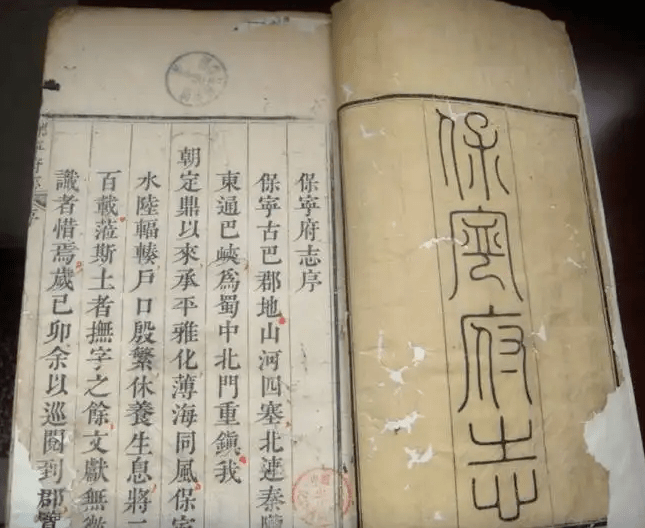 保寧府志
保寧府志序
保寧古巴郡地山河四塞北連秦
東通巴峽爲蜀中北門重鎭我
朝定鼎以來承平雅化薄海同風保寧
水陸輻輳戶口殷繁休養生息將二
百載蒞斯土者撫字之餘文獻無
識者惜焉歲己卯余以巡閱到郡